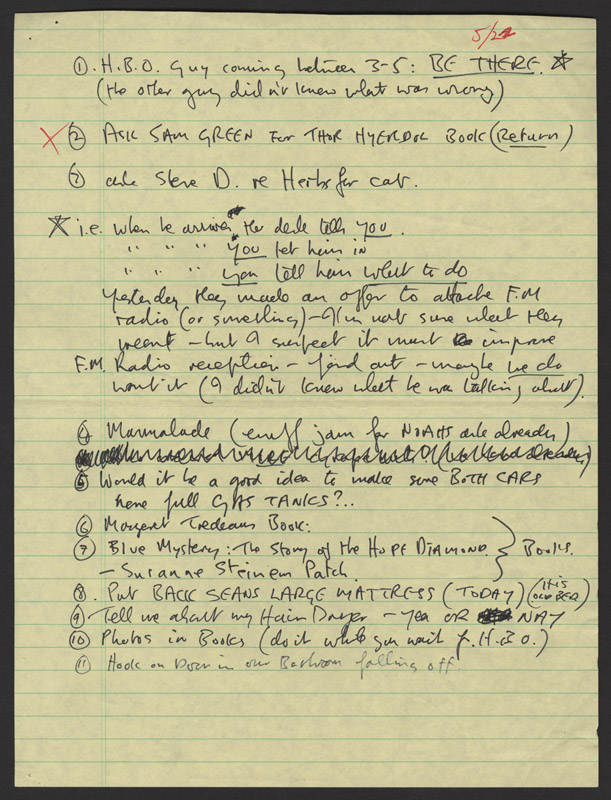 5/22
① H.B.O. Guy coming between 3-5: BE THERE. ☆
(the other guy didn't know what was wrong)
X ② ASK SAM GREEN FOR THOR HYERDOL BOOK (Return)
③ ask Steve D. re Herbs for cat.
☆ i.e. when he arrives the desk tells YOU.
" " " YOU let him in
" " " you tell him what to do
Yesterday they made an offer to attach F.M
radio (or something) – I'm not sure what they
meant – but I suspect it must improve
F.M. Radio reception – find out – maybe we do
want it (I didn't know what he was talking about).
④ Marmalade (enuff jam for NOAHS ark already)
⑤ Would it be a good idea to make sure BOTH CARS
have full GAS TANKS?..
⑥ Margaret Trudeaus Book.
⑦ Blue Mystery: The Story of the HOPE DIAMOND } Books.
– Susanne Steinem Patch.
8. Put BACK SEANS LARGE MATTRESS (TODAY) (it is
⑨ Tell me about my Hair Dryer – yea OR NAY
⑩ Photos in Books (do it while you wait f. H.B.O.)
⑪ Hook on Door in our Bathroom falling off.